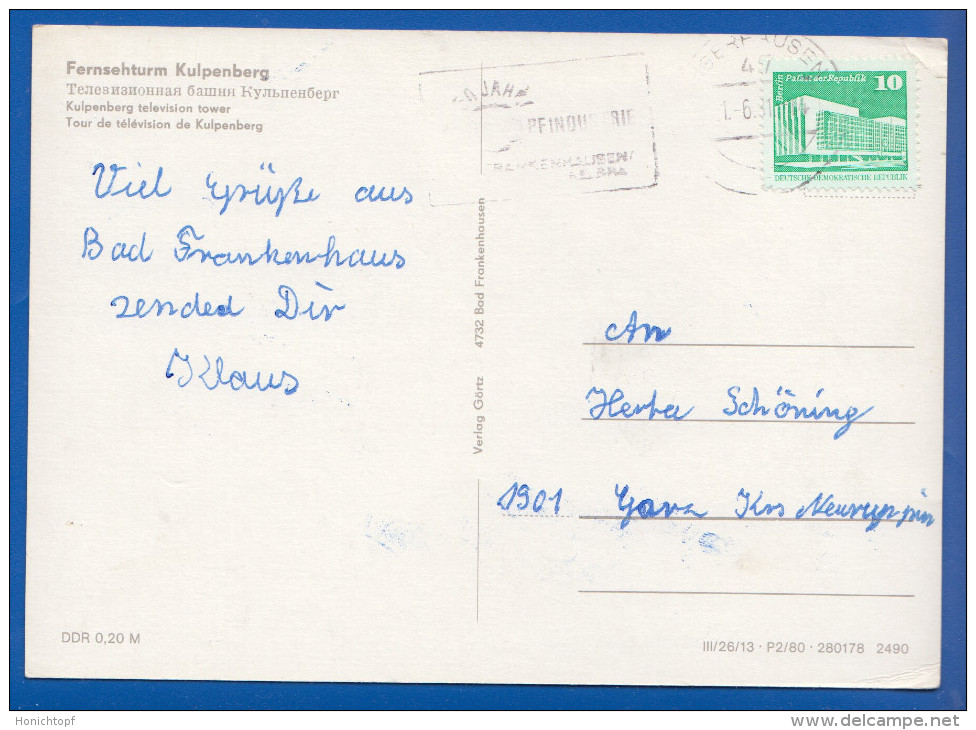 Fernsehturm Kulpenberg
Телевизионная башня Кульпенберг
Kulpenberg television tower
Tour de télévision de Kulpenberg
Viel Grüße aus
Bad Frankenhaus
sended Dir
Klaus
DDR 0,20 M
Verlag Görtz 4732 Bad Frankenhausen
JAHRE
FRANKENHAUSEN/
-6.81
Berlin Palast der Republik
10
DEUTSCHE DEMOKRATISCHE REPUBLIK
An
Herta Schöning
1901 Krs Neuruppin
III/26/13 · P2/80 · 280178 2490
Honichtopf
www.delcampe.net